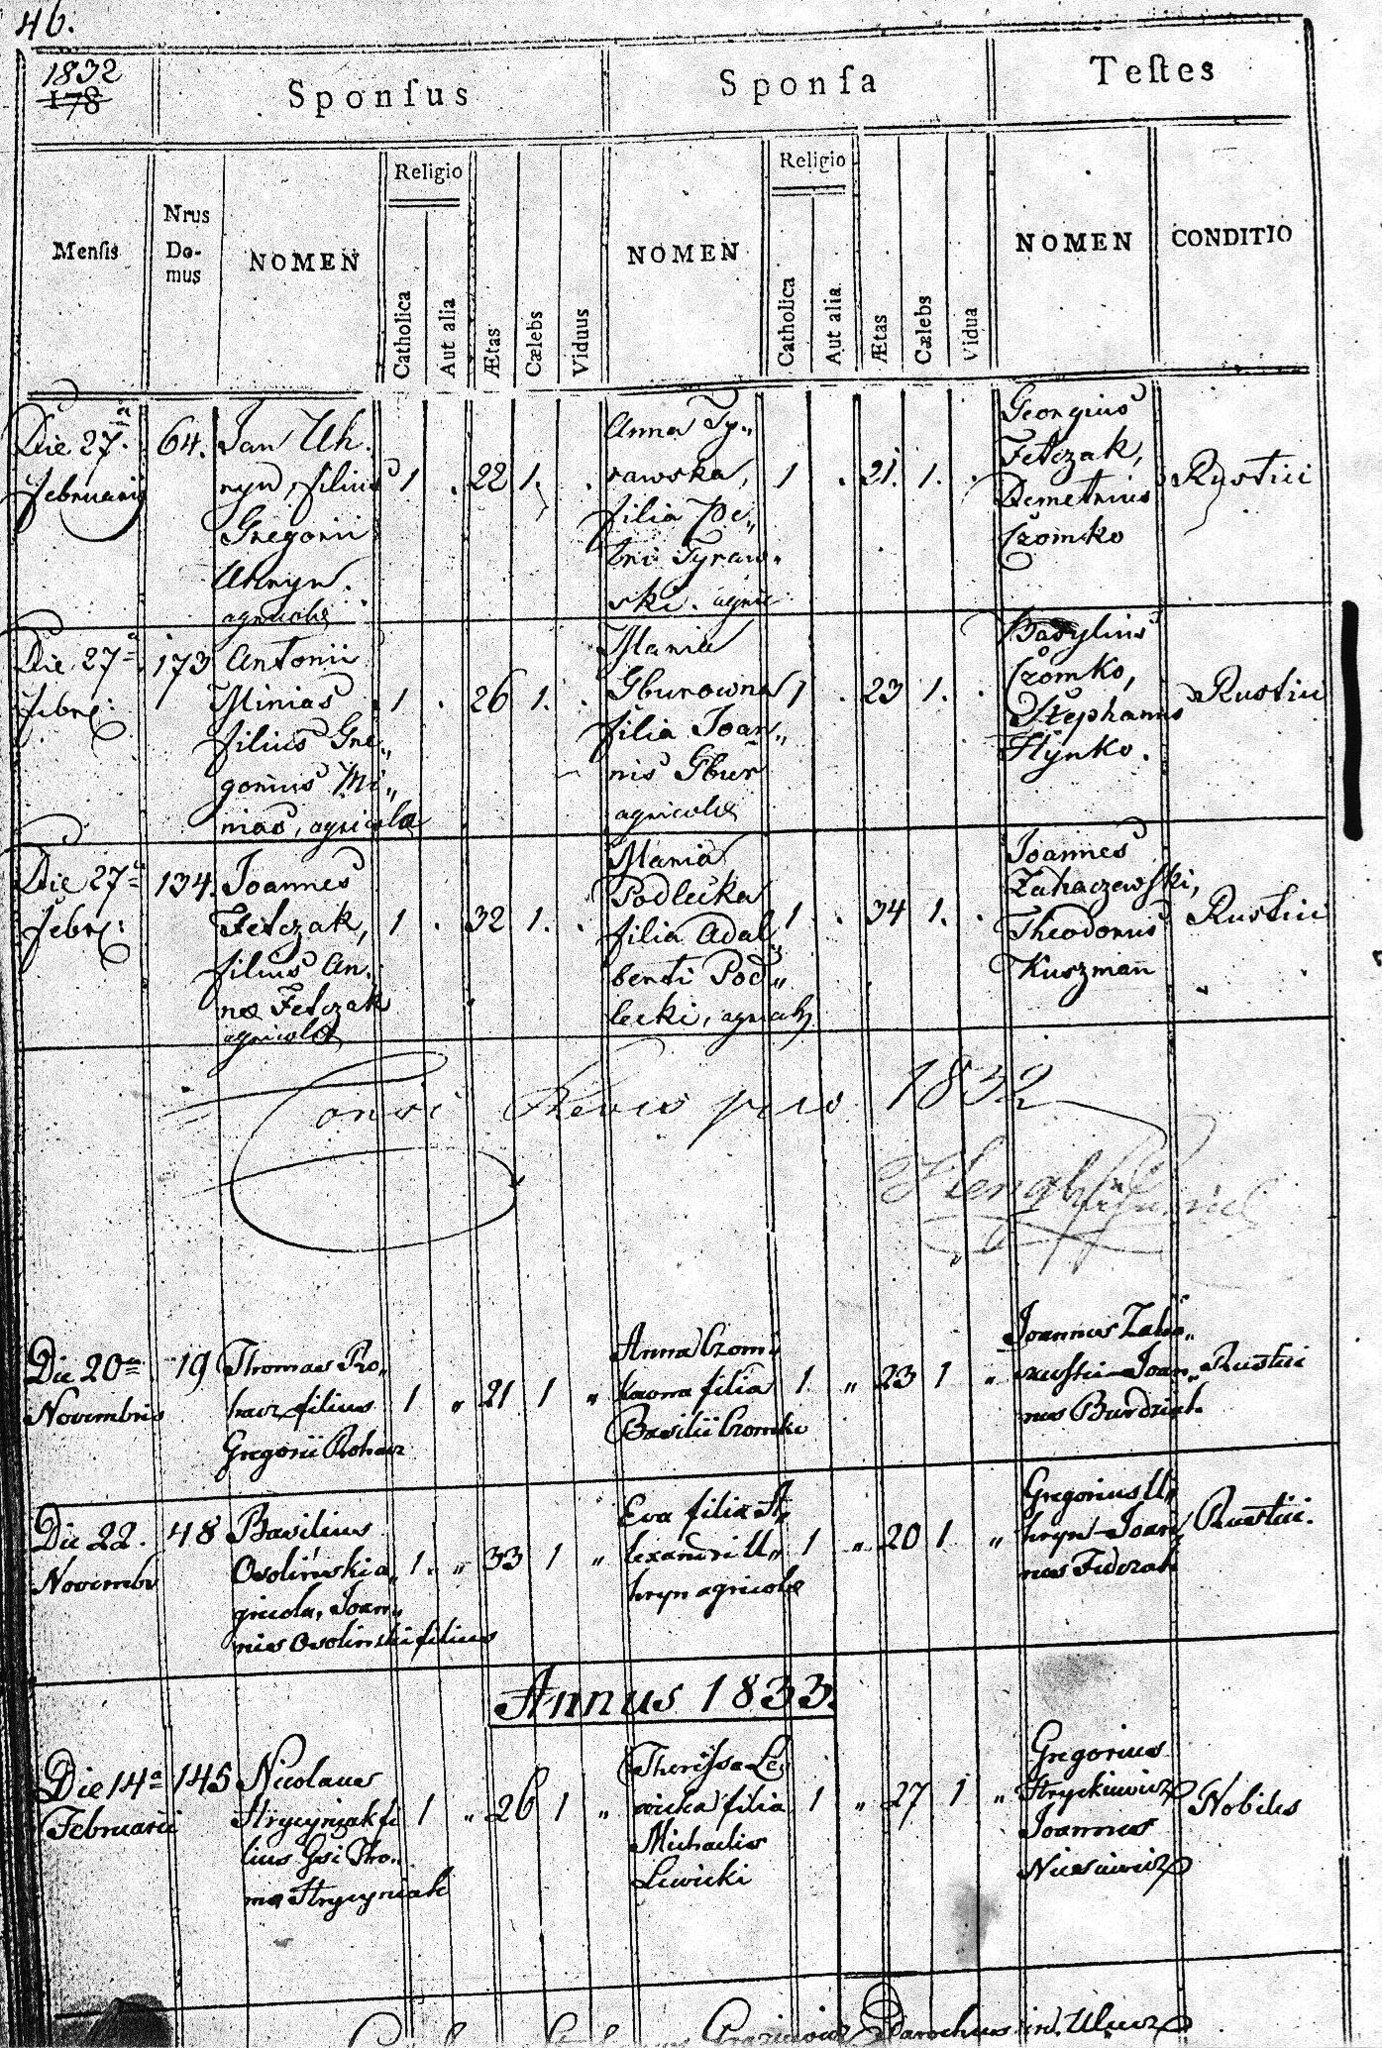 46.
1832
178
Sponsus
Sponsa
Testes
Mensis
Nrus Do-
mus
NOMEN
Religio
Catholica
Aut alia
Ætas
Cælebs
Viduus
NOMEN
Religio
Catholica
Aut alia
Ætas
Cælebs
Vidua
NOMEN
CONDITIO
Die 27.a
Februarii
64.
Jan Uh.
ryn, filius
Gregorii
Uhryn.
agricolæ
1 . 22 1. .
Anna Ty„
rawska,
filia Pe„
tri Tyraw„
ski. agric
1 . 21. 1. .
Georgius
Fetczak,
Demetrius
Czomko
Rustici
Die 27a
Febr:
173
Antonii
Minias
filius Gre„
gorius Mi„
nias, agricolæ
1 . 26 1. .
Maria
Gburowna
filia Joan„
nis Gbur
agricolæ
1 . 23 1. .
Basylius
Czomko,
Stephanus
Hynko.
Rustici
Die 27a
Febr:
134.
Joannes
Fetczak,
filius An.
næ Fetczak
agricolæ
1 . 32 1. .
Maria
Podlecka
filia Adal„
berti Pod„
lecki, agricolæ
1 . 34 1. .
Joannes
Zahaczewski,
Theodorus
Kuszman
Rustici
1832
Die 20a
Novembris
19
Thomas Ro„
hacz filius
Gregorii Rohacz
1 „ 21 1 „
Anna Czom„
kowna filia
Basilii Czomki
1 „ 23 1 „
Joannes Zaha„
czewski Joan„
nes Burdziak.
Rustici
Die 22.
Novembr
48
Basilius
Osolinski a„
gricola, Joan„
nis Osolinski filius
1. „ 33 1 „
Eva filia A„
lexandri U„
hryn agricolæ
1 „ 20 1 „
Gregorius U„
hryn Joan„
nes Fedczak
Rustici.
Annus 1833.
Die 14a
Februarii
145
Nicolaus
Hrycyniak fi
lius Gsi Tho„
mæ Hrycyniak
1 „ 26 1 „
Theressa Le„
wicka filia
Michaelis
Lewicki
1 „ 27 1 „
Gregorius
Hryckiewicz
Joannes
Niesiewicz
Nobiles
Parochus in Ulucz